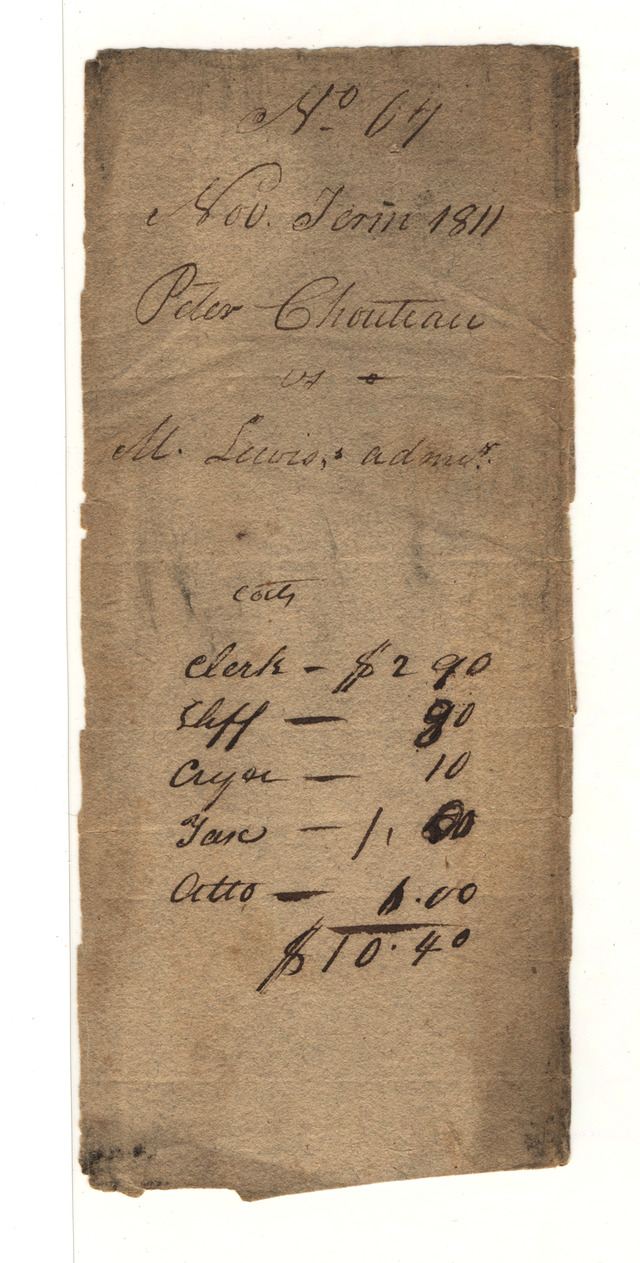 No 64
Nov. Term 1811
Peter Chouteau
vs
M. Lewis,s admr.
costs
Clerk - $2 90
Shff — 90
Cryer — 10
Tax — 1,
Atto — .00
$10.40